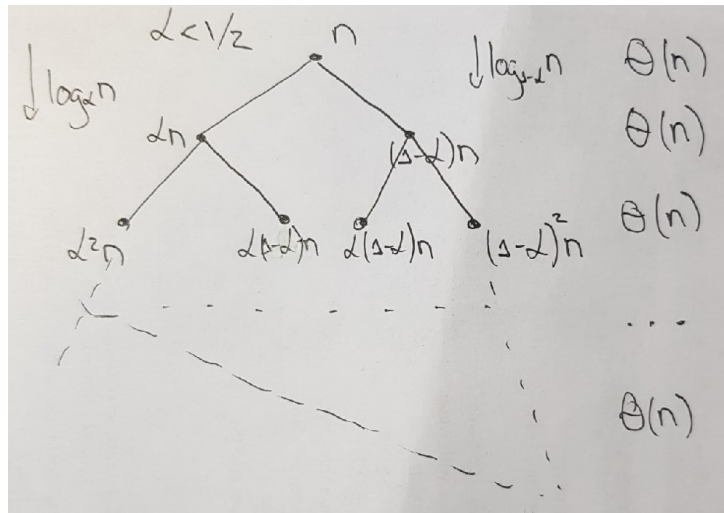 α < 1/2
n
↓ log_α n
↓ log_{1-α} n
Θ(n)
αn
(1-α)n
Θ(n)
α²n
α(1-α)n
α(1-α)n
(1-α)²n
Θ(n)
...
Θ(n)